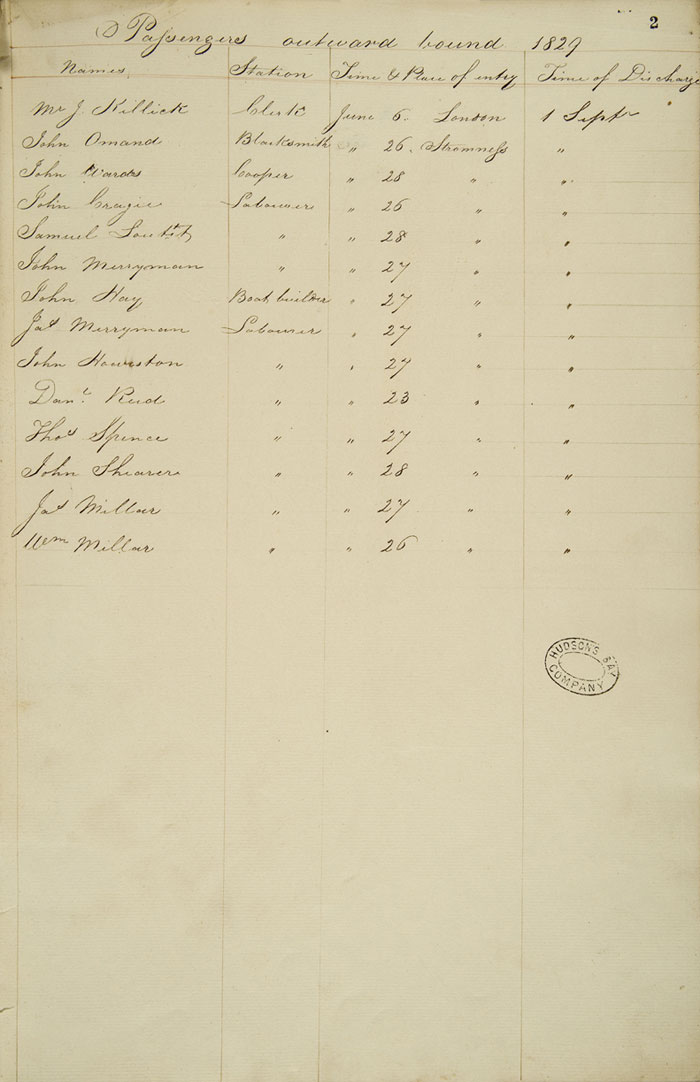 2
Passengers outward bound 1829
Names Station Time & Place of entry Time of Discharge
Mr J. Killick Clerk June 6. London 1 Septr
John Omand Blacksmith " 26. Stromness "
John Wards Cooper " 28 " "
John Cragie Labourer " 26 " "
Samuel Soutitt " " 28 " "
John Merryman " " 27 " "
John Hay Boat builder " 27 " "
Jas Merryman Labourer " 27 " "
John Howriston " " 27 " "
Danl. Reid " " 23 " "
Thos Spence " " 27 " "
John Shearer " " 28 " "
Jas Millar " " 27 " "
Wm Millar " " 26 " "
HUDSON'S BAY
COMPANY